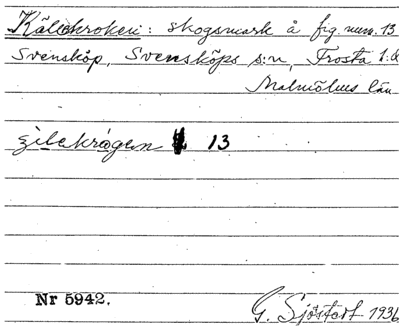 Källekroken: skogsmark å fig. num. 13
Svensköp, Svensköps s:n, Frosta h:d
Malmöhus län
13
Nr 5942.
G. Sjöstedt 1936